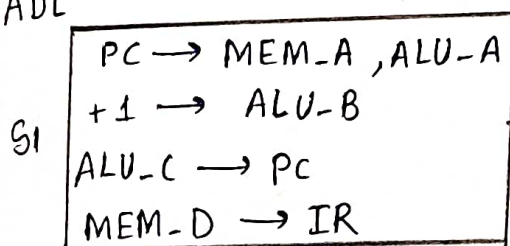 ADL
PC → MEM_A , ALU_A
+1 → ALU_B
S1
ALU_C → PC
MEM_D → IR